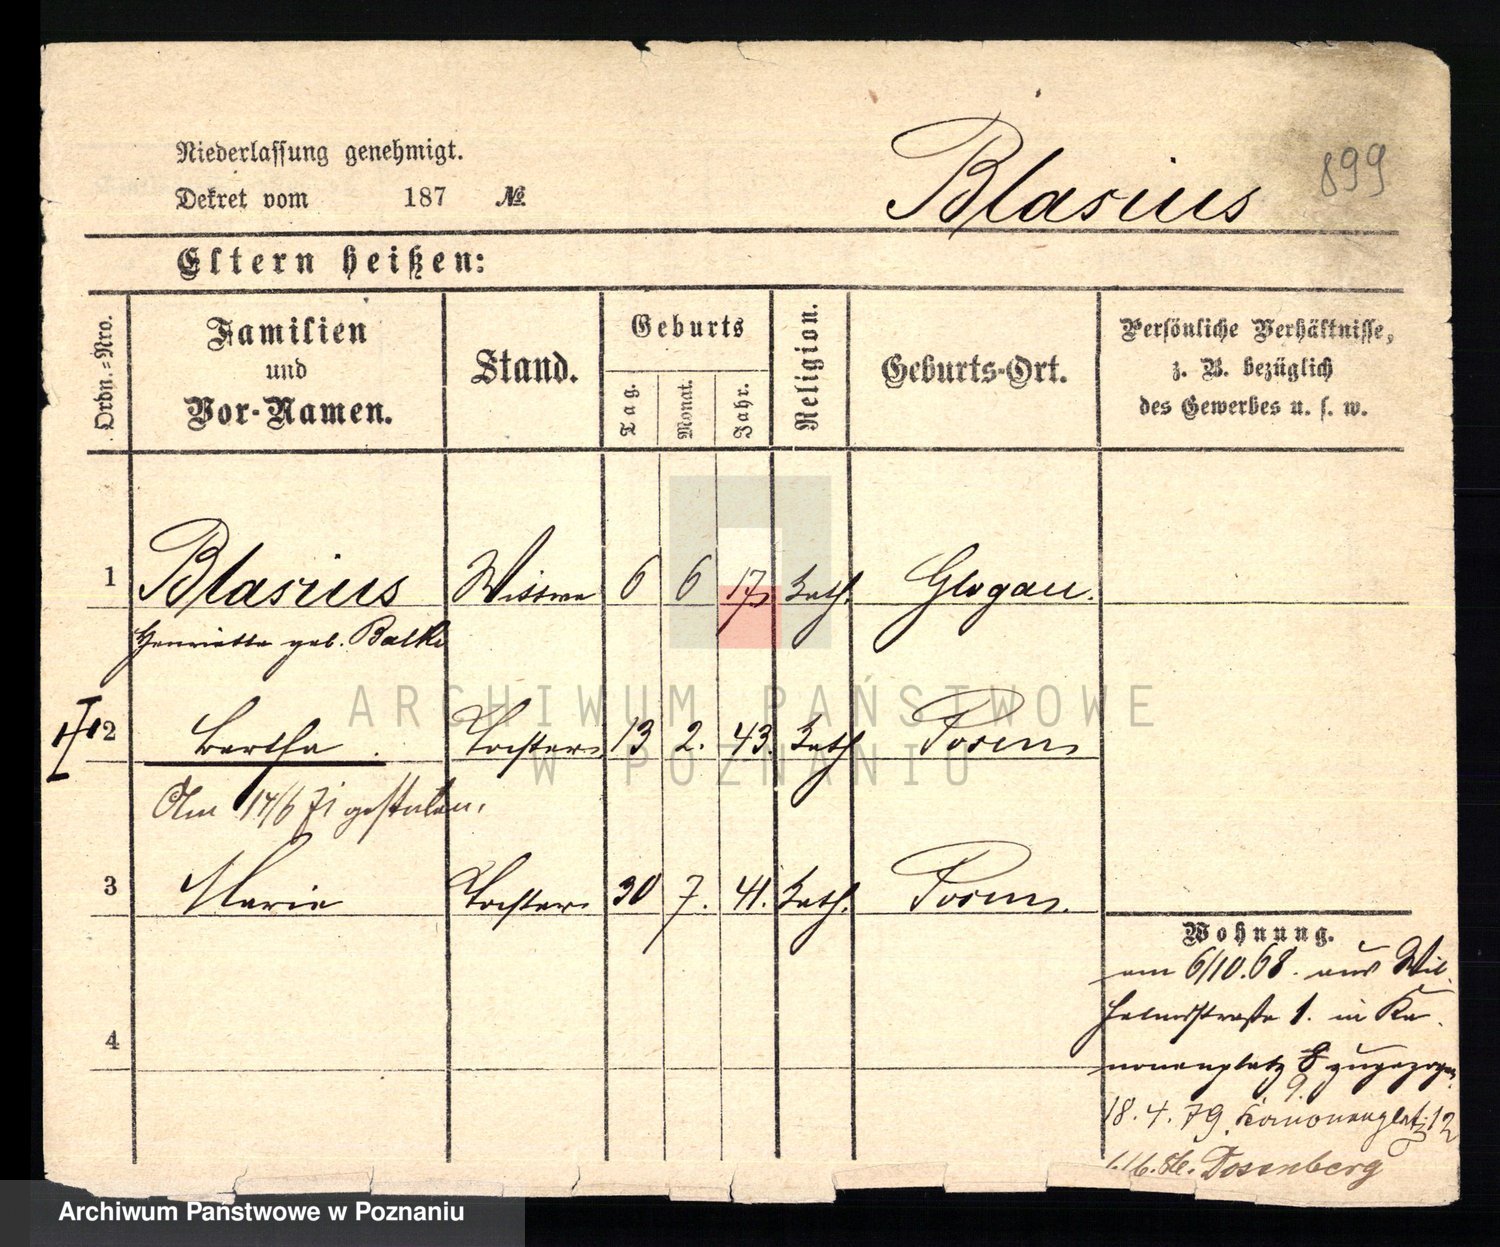 899
Niederlassung genehmigt.
Dekret vom 187 №
Blasius
Eltern heißen:
Ordn.=Nro.
Familien und Vor-Namen.
Stand.
Geburts
Tag.
Monat.
Jahr.
Religion.
Geburts-Ort.
Persönliche Verhältnisse,
z. B. bezüglich
des Gewerbes u. s. w.
1 Blasius Wittwe 6 6 Kath. Glogau.
Henriette geb. Balke
2 Bertha Tochter 13 2. 43. Kath Posen
Am 14/6 71 gestorben.
3 Marie Tochter 30 7. 41. Kath. Posen.
4
Wohnung.
am 6/10.68. aus Wil-
helmsstraße 1. in Ka-
nonenplatz 8 zugezogen
9.
18.4.79. Kanonenplatz 12
ARCHIWUM PAŃSTWOWE
W POZNANIU
Archiwum Państwowe w Poznaniu